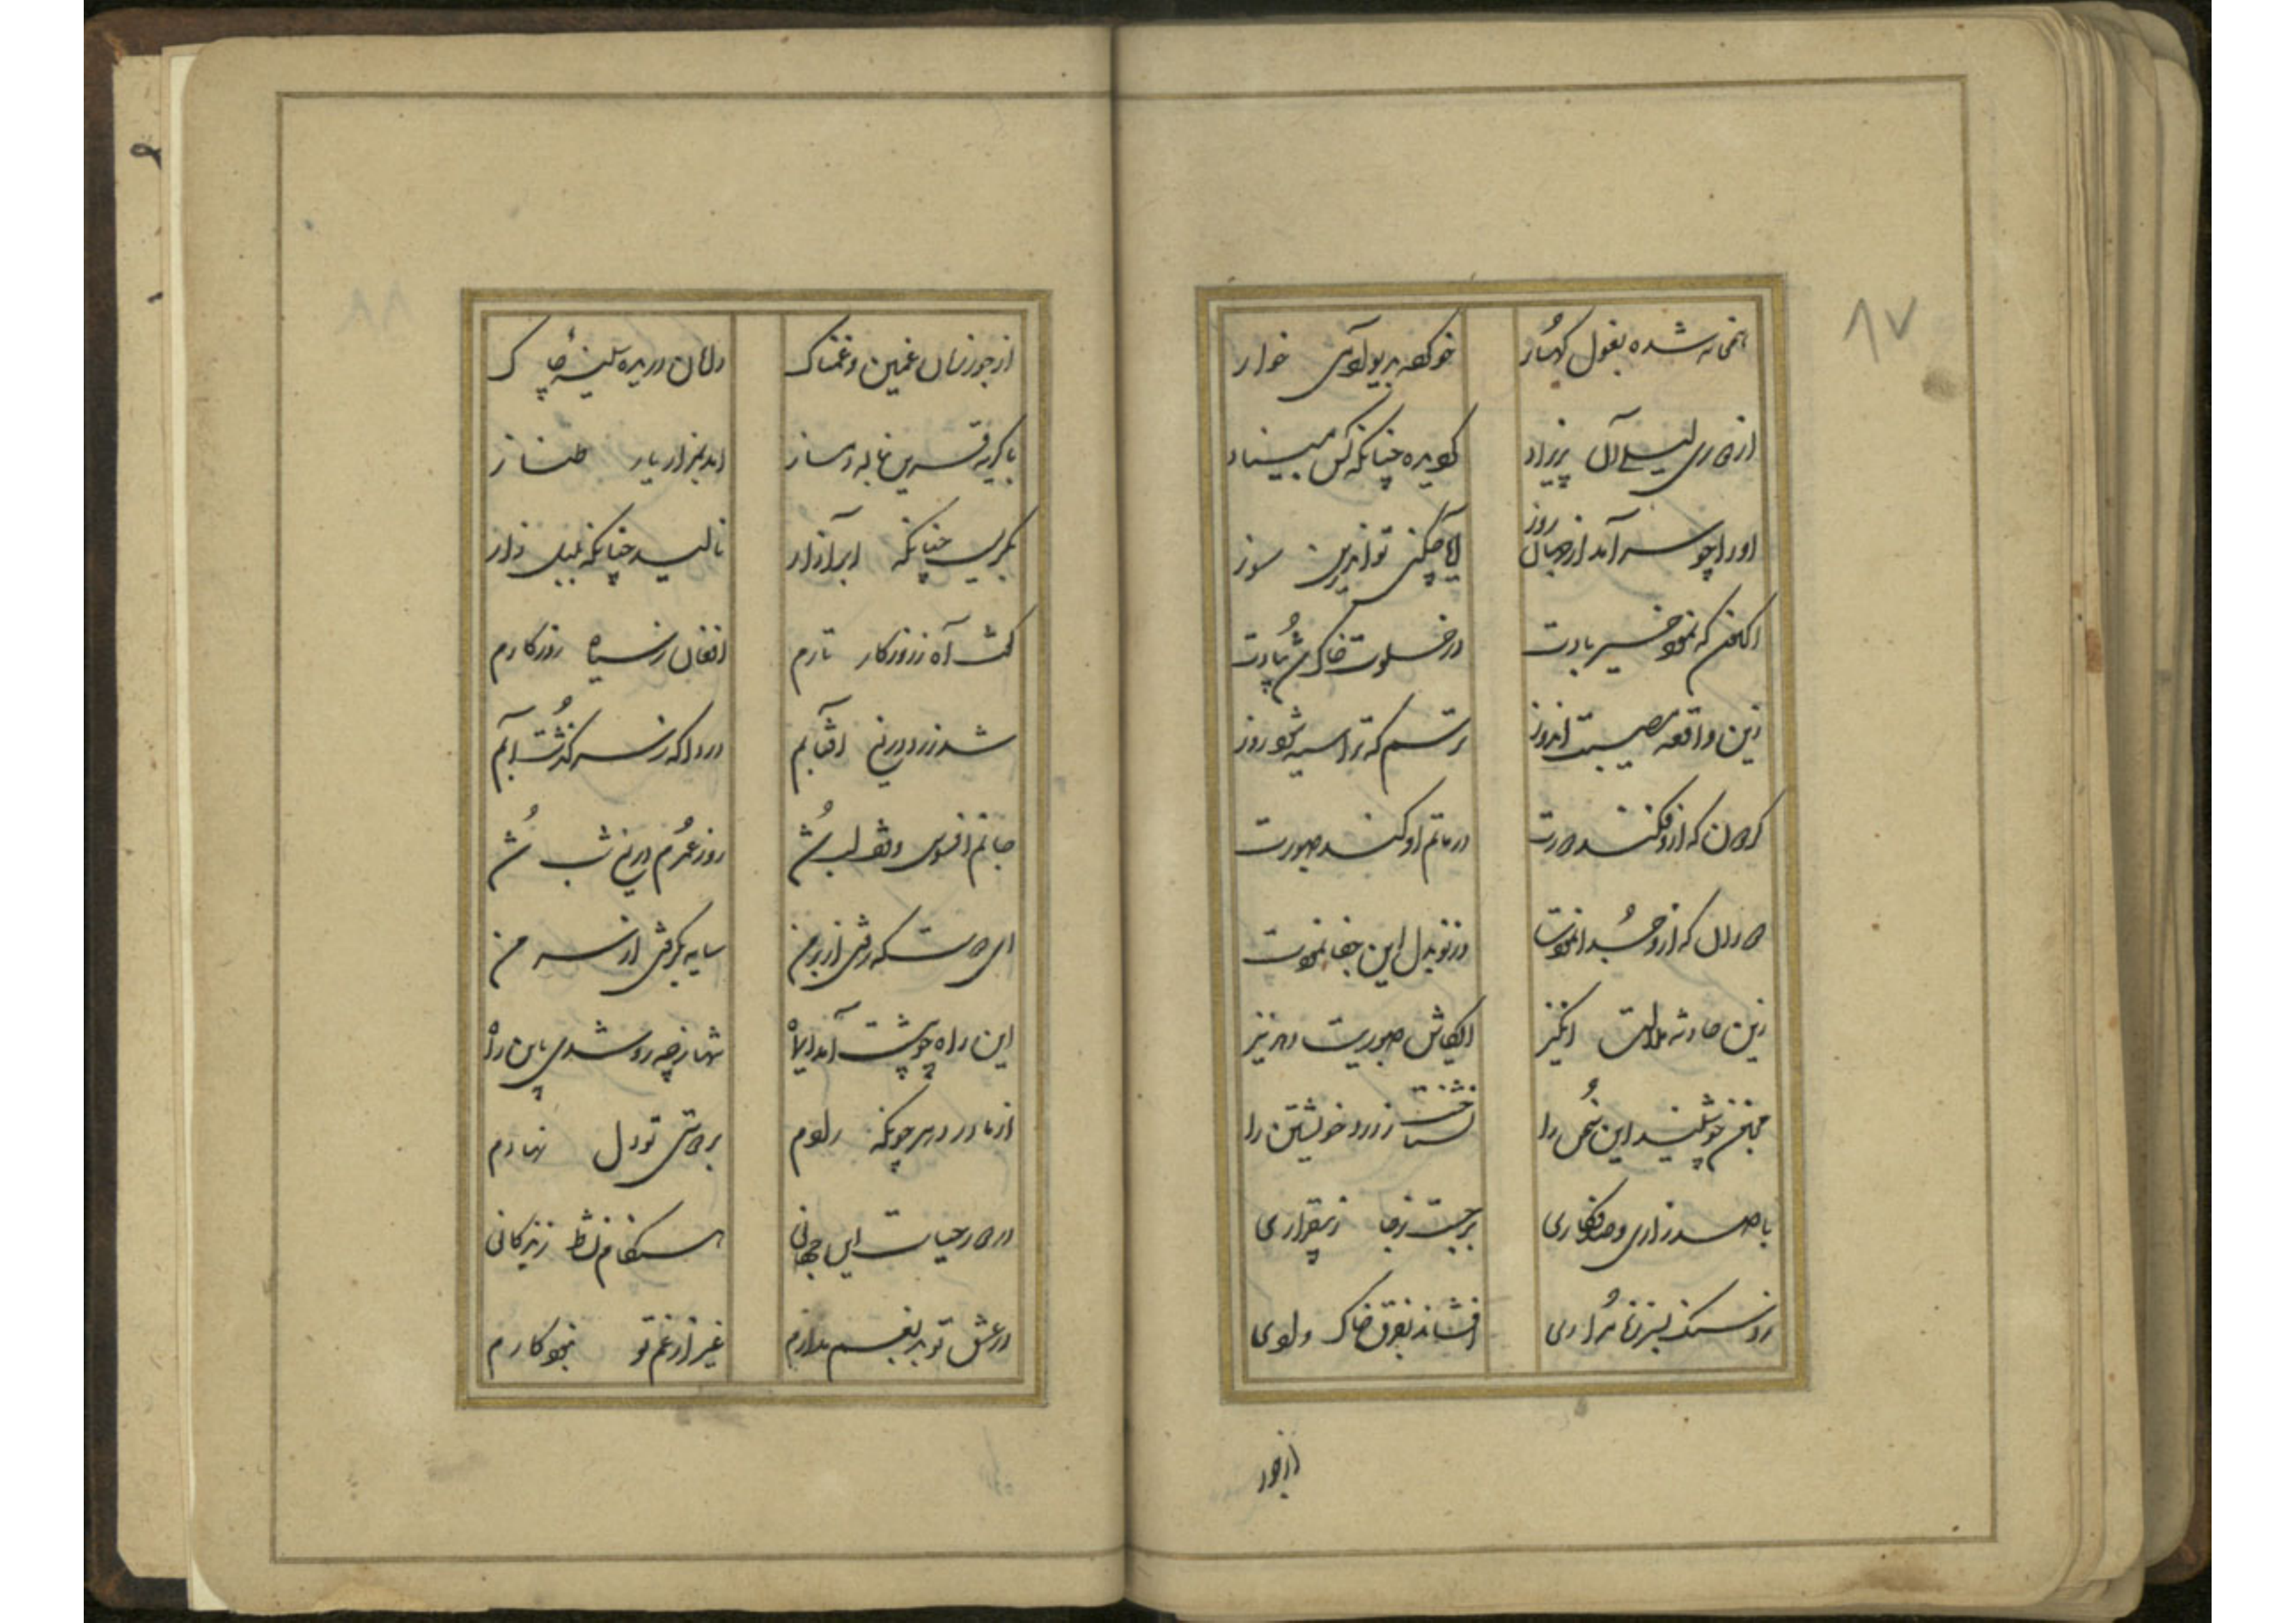 ۸۷
همخانه شده بغول کهسار
خو کرده بدیو آدمی خوار
از مادر لیلی آن پریزاد
کو دیده چنانکه کس مبیناد
او را چو سر آمد از جهان روز
آیا چکنی تو اندرین سوز
اکنون که نمود خیر بادت
در خلوت خاک شد
زین واقعه مصیبت اندوز
ترسم که ترا سیه شود روز
که از و فکند دورت
در ماتم او کند صبورت
که از و جدا نمودت
وز تو بدل این جفا نمودت
زین حادثه ملالت انگیز
ایکاش صبوریت دهد نیز
مجنون چو شنید این سخن را
نشناخت ز درد خویشتن را
با صد زاری و صد فکاری
برجست ز جا ز بیقراری
زد سنگ بسر ز نامرادی
افشاند بفرق خاک وادی
از جور
۸۸
از جور زمان غمین و غمناک
دامان دریده سینه چاک
با گریه قرین بناله دمساز
آمد بمزار یار طناز
بگریست چنانکه ابر آزار
نالید چنانکه بلبل زار
گفت آه ز روزگار تارم
افغان ز سیاه روزگارم
شد زرد دریغ آفتابم
دردا که ز سر گذشت آبم
جانم افسوس وقف لب شد
روز عمرم دریغ شب شد
ای دوست که رفتی از بر من
سایه بگرفتی از سر من
این راه چو پشت آمد
تنها ز چه رو شدی باین راه
از مادر دهر چونکه زادم
بر دوستی تو دل نهادم
در دار حیات این جهانی
هنگام نشاط زندگانی
در عشق تو بد بغم مدارم
غیر از غم تو نبود کارم